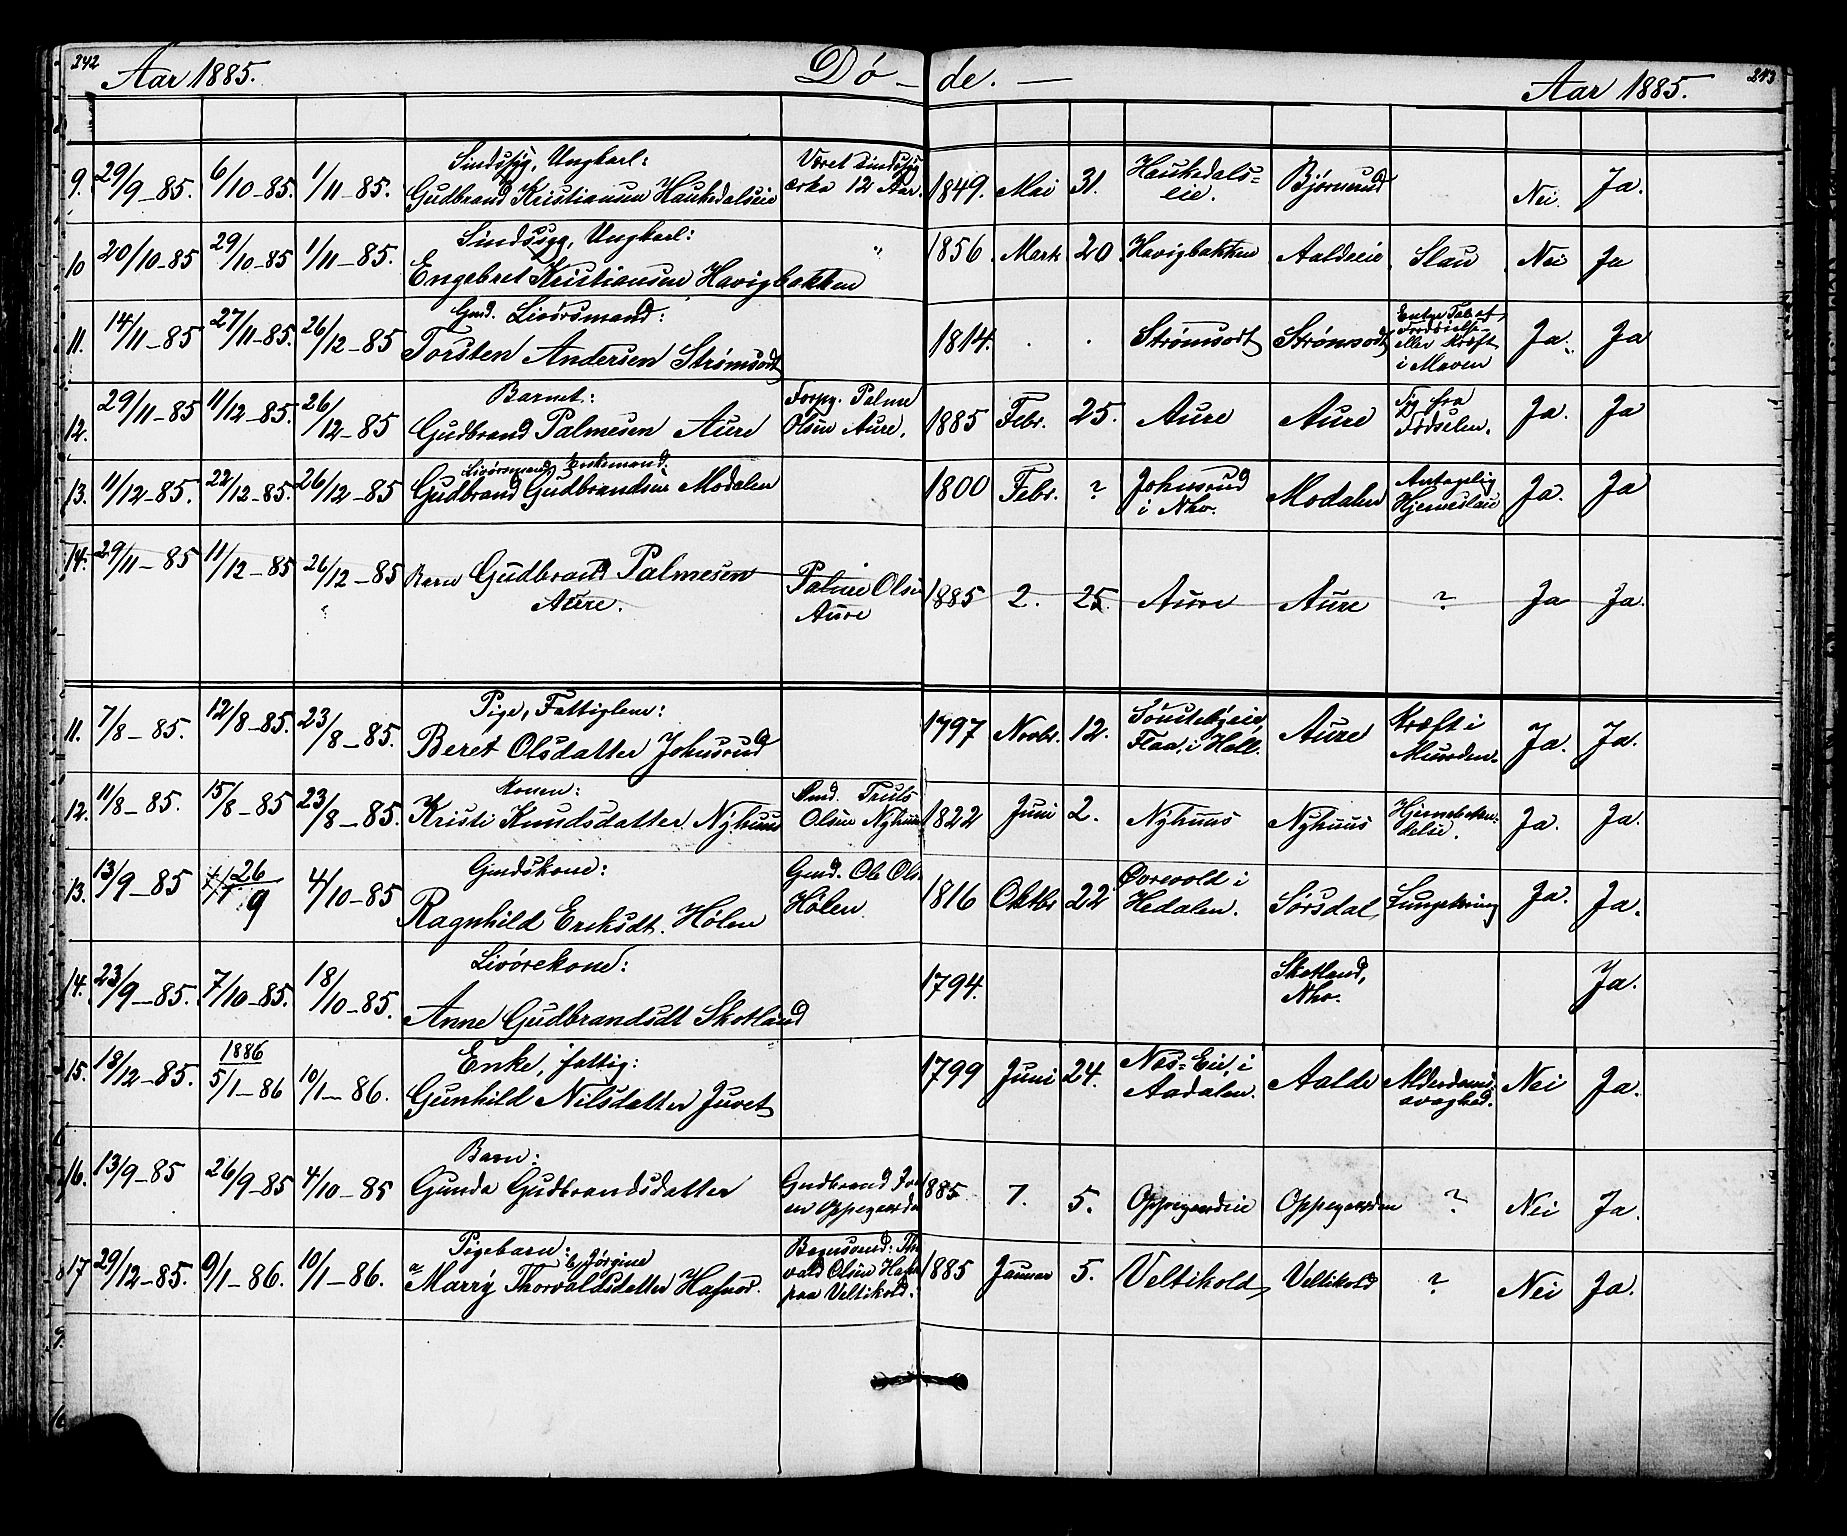 242 Aar 1885. Dö – de. — Aar 1885. 243
9. 29/9-85. 6/10-85. 1/11-85. Sindssyg, Ungkarl: Gudbrand Kristiansen Haukedalseie Været sindssyg cirka 12 Aar. 1849. Mai 31. Haukedals=eie. Björnerud Nei. Ja.
10 20/10-85 29/10-85 1/11-85. Sindssyg, Ungkarl: Engebret Kristiansen Havigbakken " 1856 Marts 20 Havigbakken Aaldseie Slau Nei Ja
11. 14/11-85 27/11-85. 26/12-85 Gmd. Livörsmand: Torsten Andersen Strömsodt 1814. . . Strömsodt Strömsodt eller Kræft i Maven Ja. Ja
12. 29/11-85 11/12-85. 26/12-85 Barnet: Gudbrand Palmesen Aure Forpg. Palme Olsen Aure. 1885 Febr. 25. Aure Aure Syg fra Födselen. Ja. Ja
13. 11/12-85. 22/12-85. 26/12-85 Livörsmand Enkemand: Gudbrand Gudbrandsen Modalen 1800 Febr. ? Johnsrud i Nho. Modalen Antagelig Hjerneslau Ja. Ja
14. 29/11-85 11/12-85 26/12-85 Barn Gudbrand Palmesen Aure. Palme Olsen Aure 1885 2. 25. Aure Aure ? Ja Ja.
11. 7/8-85. 12/8-85. 23/8-85. Pige, Fattiglem: Beret Olsdatter Johnsrud 1797 Novbr. 12. Flaa, i Hall. Aure Kræft i Munden. Ja. Ja.
12. 11/8-85. 15/8-85 23/8-85. Konen: Kristi Knudsdatter Nyhuus Gmd. Truls Olsen Nyhuus 1822 Juni 2. Nyhuus Nyhuus Ja. Ja.
13. 13/9-85 26/9 4/10-85 Gmdskone: Ragnhild Eriksdt. Hölen Gmd. Ole Ols. Hölen 1816 Oktbr 22 Övrevold i Hedalen. Sörsdal Ja. Ja.
14. 23/9-85. 7/10-85. 18/10-85. Livörekone: Anne Gudbrandsdt Skotland 1794. Skotland, Nho. Ja.
15. 18/12-85. 1886 5/1-86 10/1-86. Enke, fattig: Gunhild Nilsdatter Juvet 1799 Juni 24. Næs=Eie, i Aadalen. Aalde Alderdoms svaghed. Nei Ja.
16. 13/9-85 26/9-85 4/10-85 Barn: Gunda Gudbrandsdatter Gudbrand 1885 7. 5. Oppegaardeie Oppegaarden ? Nei Ja.
17 29/12-85. 9/1-86. 10/1-86. Pigebarn: Marry Jörgine Thorvaldsdatter Hafnor. Thorvald Olsen Hafnor paa Veltikold. 1885 Januar 5. Veltikold Veltikold ? Nei Ja.